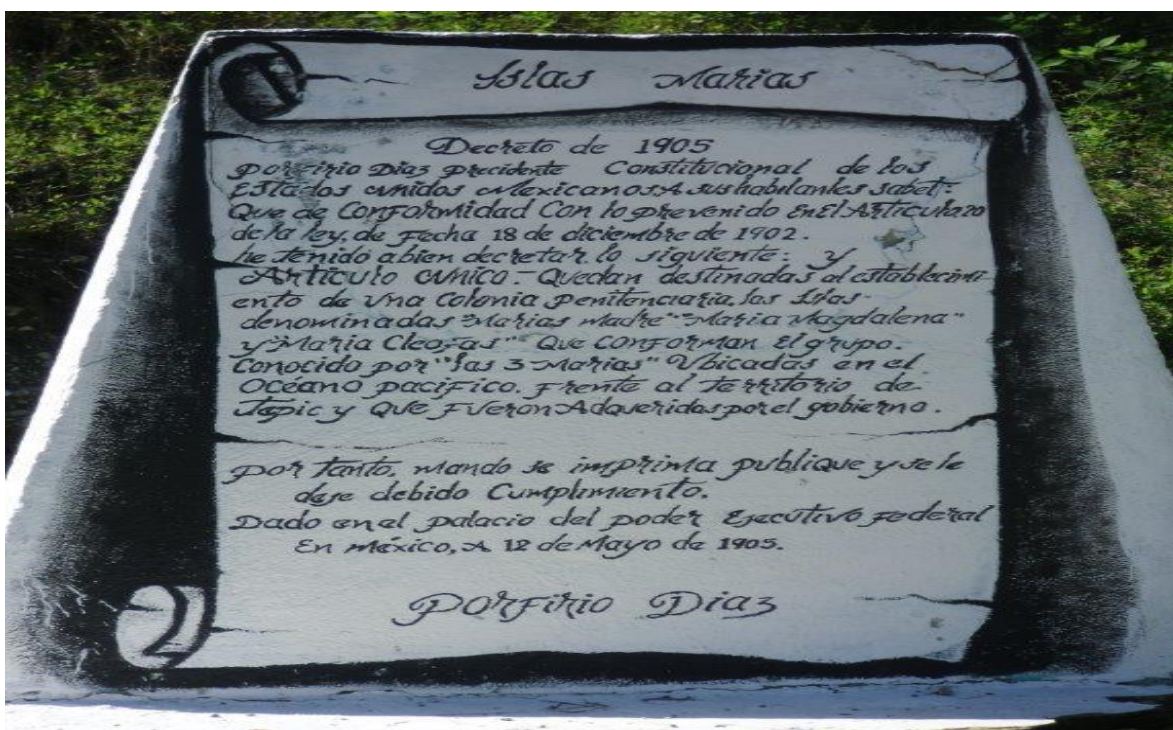 Islas Marias
Decreto de 1905
Porfirio Diaz Precidente Constitucional de los
Estados unidos Mexicanos A sus habitantes sabet:
Que de Conformidad Con lo prevenido En El Articulo 20
de la ley, de Fecha 18 de diciembre de 1902.
he tenido abien decretar lo siguiente: y
Articulo unico- Quedan destinadas al establecimi
ento de una Colonia penitenciaria, las Islas-
denominadas "Marias Madre" "Maria Magdalena"
y "Maria Cleofas" Que Conforman El grupo.
Conocido por "las 3 Marias" Ubicadas en el
Océano pacifico. Frente al Territorio de-
Tepic y Que Fueron Adqueridas por el gobierno.
por Tanto, mando se imprima publique y se le
dese debido Cumplimiento.
Dado en el palacio del poder Ejecutivo Federal
En méxico, A 12 de Mayo de 1905.
Porfirio Diaz